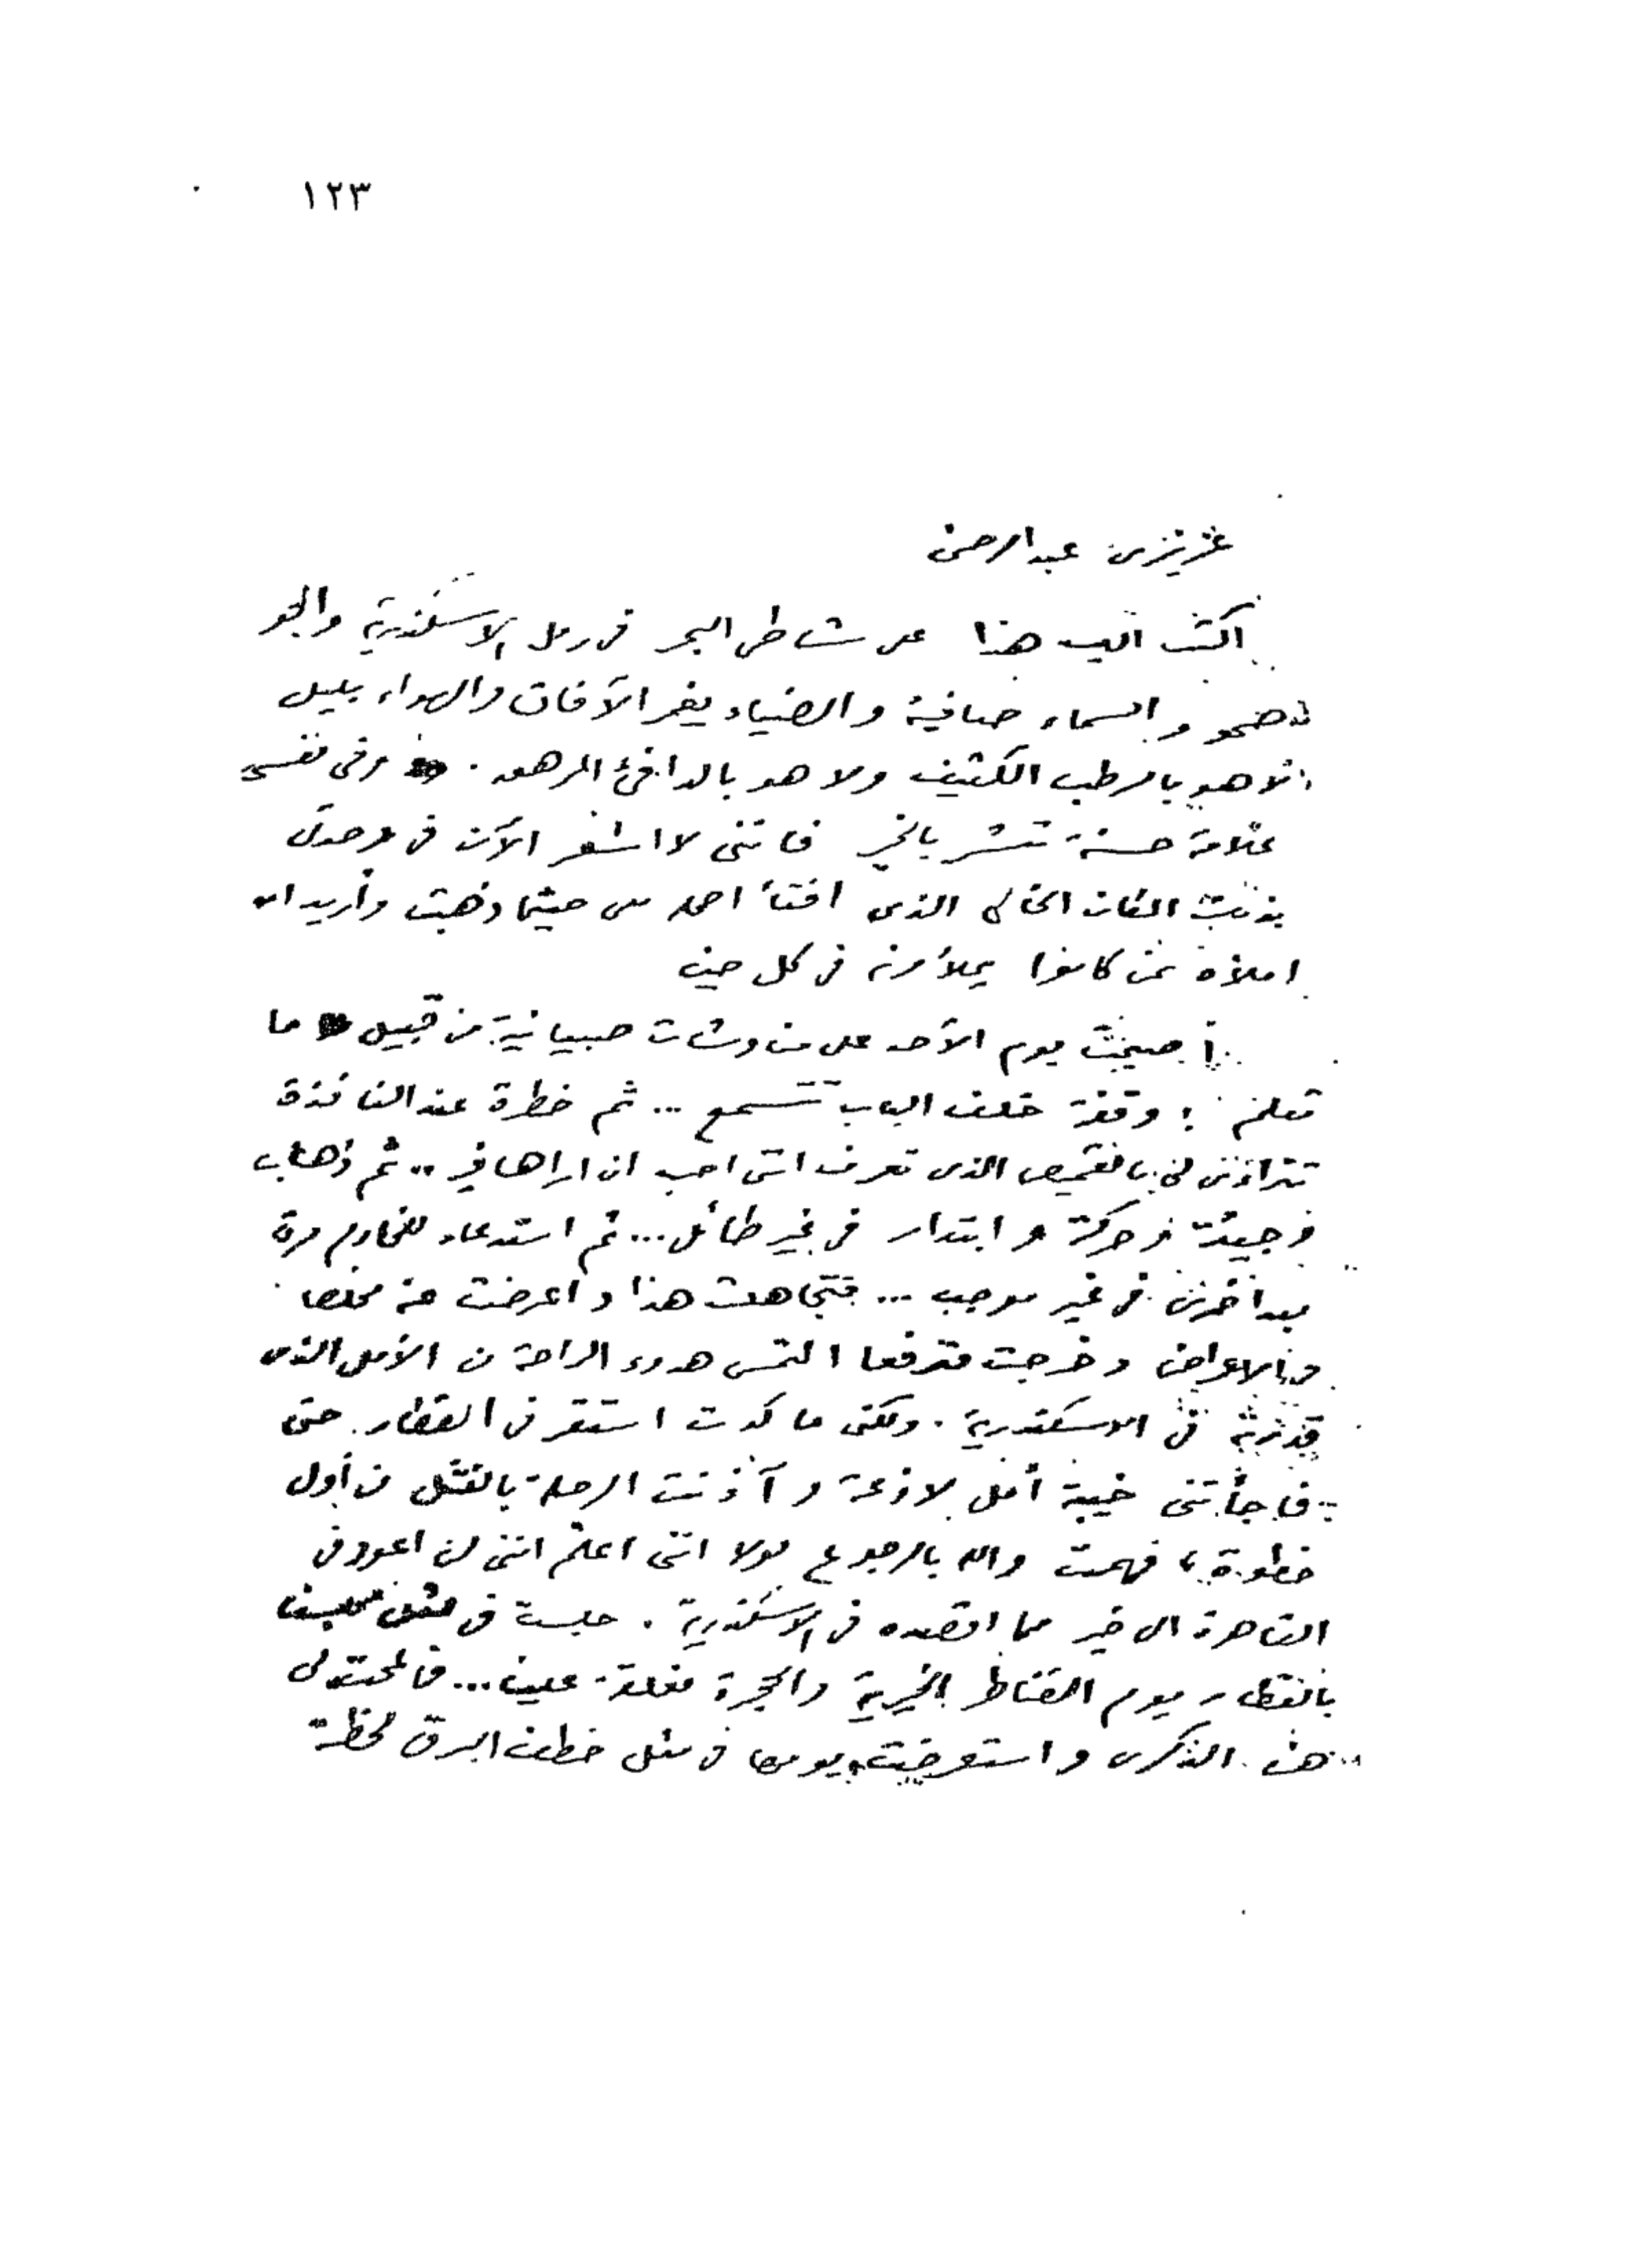 ١٢٣
عزيزى عبد الرحمن
اكتب اليك هذا على شاطئ البحر فى رمل الاسكندرية والجو
صحو والسماء صافية والضياء يغمر الآفاق والهواء بليل
لا هو بالرطب الكثيف ولا هو بالدافئ المرهق . وفى نفسى
علامة حسنة تبشر بالخير فاننى لا اشعر الآن فى وحدتى
بذلك المكان الخالى الذى افتأ احمله معى حيثما ذهبت وأريد ان
املأه بمن كانوا يملأونه فى كل حين
أصبحت يوم الأحد على مناوشات صبيانية من قبيل ما
تعلم : وقفة خلف الباب تتسمع ... ثم خطرة عند النافذة
تتراءى لى بالقميص الذى تعرف اننى احب ان اراها فيه .. ثم ذهاب
وجيئة وحركة وابتدار فى غير طائل ... ثم استدعاء للخادم مرة
بعد أخرى فى غير موجب ... فتجاهلت هذا واعرضت عنه مخلصا
فى الاعراض وخرجت مترفعا التمس هدوء الراحة من الأمل الذى
قدرته فى الاسكندرية . ولكنى ما كدت استقر فى القطار حتى
فاجأتنى خيبة أمل لاذعة وآذنت الرحلة بالفشل من أول
خطوة ، فهممت والله بالرجوع لولا اننى اعلم اننى لن اعود فى
القاهرة الى خير مما اقصده فى الاسكندرية . جلست فى مثل مجلسنا
بالقطار يوم القناطر الخيرية والحجرة مغلقة علينا ... فالحت لى
هذه الذكرى واستعرضت يومها فى مثل خطف البرق لحظة